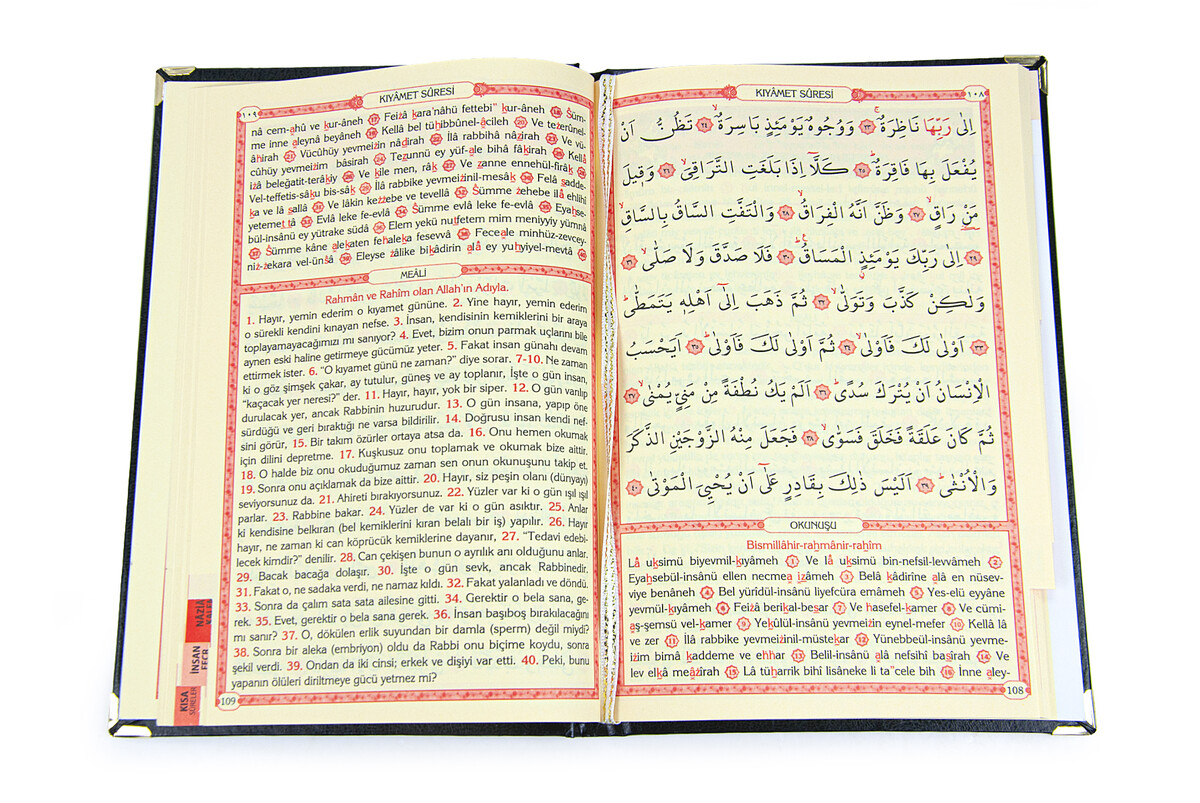 KIYÂMET SÛRESİ
١٠٨
اِلٰى رَبِّهَا نَاظِرَةٌۚ ﴿٢٣﴾ وَوُجُوهٌ يَوْمَئِذٍ بَاسِرَةٌۙ ﴿٢٤﴾ تَظُنُّ اَنْ
يُفْعَلَ بِهَا فَاقِرَةٌۜ ﴿٢٥﴾ كَلَّٓا اِذَا بَلَغَتِ التَّرَاقِيَۙ ﴿٢٦﴾ وَق۪يلَ
مَنْ رَاقٍۙ ﴿٢٧﴾ وَظَنَّ اَنَّهُ الْفِرَاقُۙ ﴿٢٨﴾ وَالْتَفَّتِ السَّاقُ بِالسَّاقِۙ
﴿٢٩﴾ اِلٰى رَبِّكَ يَوْمَئِذٍۨ الْمَسَاقُۜ ﴿٣٠﴾ فَلَا صَدَّقَ وَلَا صَلّٰىۙ ﴿٣١﴾
وَلٰكِنْ كَذَّبَ وَتَوَلّٰىۙ ﴿٣٢﴾ ثُمَّ ذَهَبَ اِلٰٓى اَهْلِه۪ يَتَمَطّٰىۜ
﴿٣٣﴾ اَوْلٰى لَكَ فَاَوْلٰىۙ ﴿٣٤﴾ ثُمَّ اَوْلٰى لَكَ فَاَوْلٰىۜ ﴿٣٥﴾ اَيَحْسَبُ
الْاِنْسَانُ اَنْ يُتْرَكَ سُدًىۜ ﴿٣٦﴾ اَلَمْ يَكُ نُطْفَةً مِنْ مَنِيٍّ يُمْنٰىۙ ﴿٣٧﴾
ثُمَّ كَانَ عَلَقَةً فَخَلَقَ فَسَوّٰىۙ ﴿٣٨﴾ فَجَعَلَ مِنْهُ الزَّوْجَيْنِ الذَّكَرَ
وَالْاُنْثٰىۜ ﴿٣٩﴾ اَلَيْسَ ذٰلِكَ بِقَادِرٍ عَلٰٓى اَنْ يُحْيِيَ الْمَوْتٰى ﴿٤٠﴾
OKUNUŞU
Bismillâhir-raḥmânir-raḥîm
Lâ uḳsimü biyevmil-ḳıyâmeh 1 Ve lâ uḳsimü bin-nefsil-levvâmeh 2
Eyaḥsebül-insânü ellen necmea izâmeh 3 Belâ ḳâdirîne alâ en nüsev-
viye benâneh 4 Bel yürîdül-insânü liyefcüra emâmeh 5 Yes-elü eyyâne
yevmül-ḳıyâmeh 6 Feiẑâ beriḳal-beṣar 7 Ve hasefel-ḳamer 8 Ve cümi-
aş-şemsü vel-ḳamer 9 Yeḳûlül-insânü yevmeiẑin eynel-mefer 10 Kellâ lâ
ve zer 11 İlâ rabbike yevmeiẑinil-müsteḳar 12 Yünebbeül-insânü yevme-
iẑim bimâ ḳaddeme ve eḫḫar 13 Belil-insânü alâ nefsihî baṣîrah 14 Ve
lev elḳâ meâẑîrah 15 Lâ tüḥarrik bihî lisâneke li ta"cele bih 16 İnne aley-
108
KIYÂMET SÛRESİ
١٠٩
nâ cem-ahû ve ḳur-âneh 17 Feiẑâ ḳara'nâhü fettebi" ḳur-âneh 18 Ŝüm-
me inne aleynâ beyâneh 19 Kellâ bel tüḥibbûnel-âcileh 20 Ve teẑerûnel-
âḫirah 21 Vücûhüy yevmeiẑin nâḍirah 22 İlâ rabbihâ nâẓirah 23 Ve vü-
cûhüy yevmeiẑim bâsirah 24 Teẓunnü ey yüf-ale bihâ fâḳirah 25 Kellâ
iẑâ beleġatit-terâḳiy 26 Ve ḳîle men, râḳ 27 Ve ẓanne ennehül-firâḳ 28
Vel-teffetis-sâḳu bis-sâḳ 29 İlâ rabbike yevmeiẑinil-mesâḳ 30 Felâ ṣadde-
ḳa ve lâ ṣallâ 31 Ve lâkin keẑẑebe ve tevellâ 32 Ŝümme ẑehebe ilâ ehlihî
yetemeṭṭâ 33 Evlâ leke fe-evlâ 34 Ŝümme evlâ leke fe-evlâ 35 Eyaḥse-
bül-insânü ey yütrake südâ 36 Elem yekü nuṭfetem mim meniyyiy yümnâ
37 Ŝümme kâne aleḳaten feḫaleḳa fesevvâ 38 Feceale minhüz-zevcey-
niẑ-ẑekara vel-ünŝâ 39 Eleyse ẑâlike biḳâdirin alâ ey yuḥyiyel-mevtâ 40
MEÂLİ
Rahmân ve Rahîm olan Allah'ın Adıyla.
1. Hayır, yemin ederim o kıyamet gününe. 2. Yine hayır, yemin ederim
o sürekli kendini kınayan nefse. 3. İnsan, kendisinin kemiklerini bir araya
toplayamayacağımızı mı sanıyor? 4. Evet, bizim onun parmak uçlarını bile
aynen eski haline getirmeye gücümüz yeter. 5. Fakat insan günahı devam
ettirmek ister. 6. “O kıyamet günü ne zaman?” diye sorar. 7-10. Ne zaman
ki o göz şimşek çakar, ay tutulur, güneş ve ay toplanır, İşte o gün insan,
“kaçacak yer neresi?” der. 11. Hayır, hayır, yok bir siper. 12. O gün varılıp
durulacak yer, ancak Rabbinin huzurudur. 13. O gün insana, yapıp öne
sürdüğü ve geri bıraktığı ne varsa bildirilir. 14. Doğrusu insan kendi nef-
sini görür, 15. Bir takım özürler ortaya atsa da. 16. Onu hemen okumak
için dilini depretme. 17. Kuşkusuz onu toplamak ve okumak bize aittir.
18. O halde biz onu okuduğumuz zaman sen onun okunuşunu takip et.
19. Sonra onu açıklamak da bize aittir. 20. Hayır, siz peşin olanı (dünyayı)
seviyorsunuz da. 21. Ahireti bırakıyorsunuz. 22. Yüzler var ki o gün ışıl ışıl
parlar. 23. Rabbine bakar. 24. Yüzler de var ki o gün asıktır. 25. Anlar
ki kendisine belkıran (bel kemiklerini kıran belalı bir iş) yapılır. 26. Hayır
hayır, ne zaman ki can köprücük kemiklerine dayanır, 27. “Tedavi edebi-
lecek kimdir?” denilir. 28. Can çekişen bunun o ayrılık anı olduğunu anlar.
29. Bacak bacağa dolaşır. 30. İşte o gün sevk, ancak Rabbinedir.
31. Fakat o, ne sadaka verdi, ne namaz kıldı. 32. Fakat yalanladı ve döndü.
33. Sonra da çalım sata sata ailesine gitti. 34. Gerektir o bela sana, ge-
rek. 35. Evet, gerektir o bela sana gerek. 36. İnsan başıboş bırakılacağını
mı sanır? 37. O, dökülen erlik suyundan bir damla (sperm) değil miydi?
38. Sonra bir aleka (embriyo) oldu da Rabbi onu biçime koydu, sonra
şekil verdi. 39. Ondan da iki cinsi; erkek ve dişiyi var etti. 40. Peki, bunu
yapanın ölüleri diriltmeye gücü yetmez mi?
109
NÂZİA
İNSAN
FECR
KISA
SÛRELER